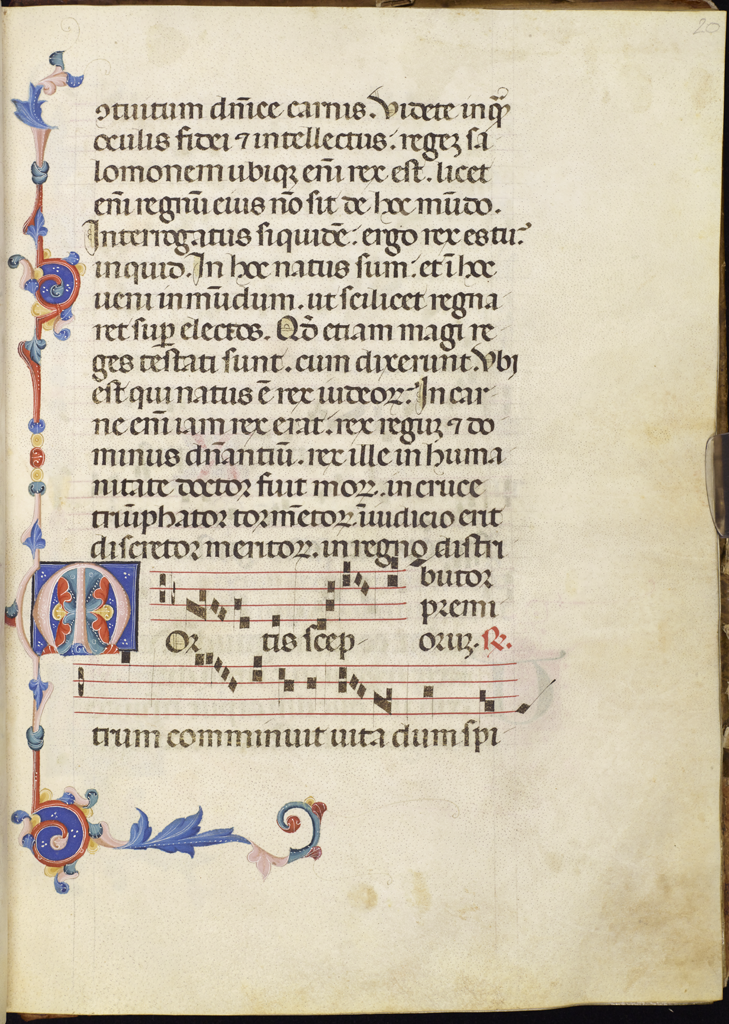 20
ꝯtuitum dn̄ice carnis. Videte inqͣꝫ
oculis fidei ⁊ intellectus. regeꝫ sa
lomonem ubiqꝫ eni̅ rex est. licet
eni̅ regnū eius nō sit de hoc mūdo.
Interrogatus siquidē. ergo rex es tu?
inquid. In hoc natus sum. et ī hoc
ueni in mūdum. ut scilicet regna
ret suꝑ electos. Qd̄ etiam magi re
ges testati sunt. cum dixerunt. Vbi
est qui natus ē rex iudeoꝝ. In car
ne eni̅ iam rex erat. rex regūꝫ ⁊ do
minus dn̄antiū. rex ille in huma
nitate doctor fuit moꝝ. in cruce
triūphator tormētoꝝ. ī iudicio erit
discretor meritoꝝ. in regno distri
butor
premi
oruꝫ. ℟.
MOR tis scep
trum comminuit uita dum spi